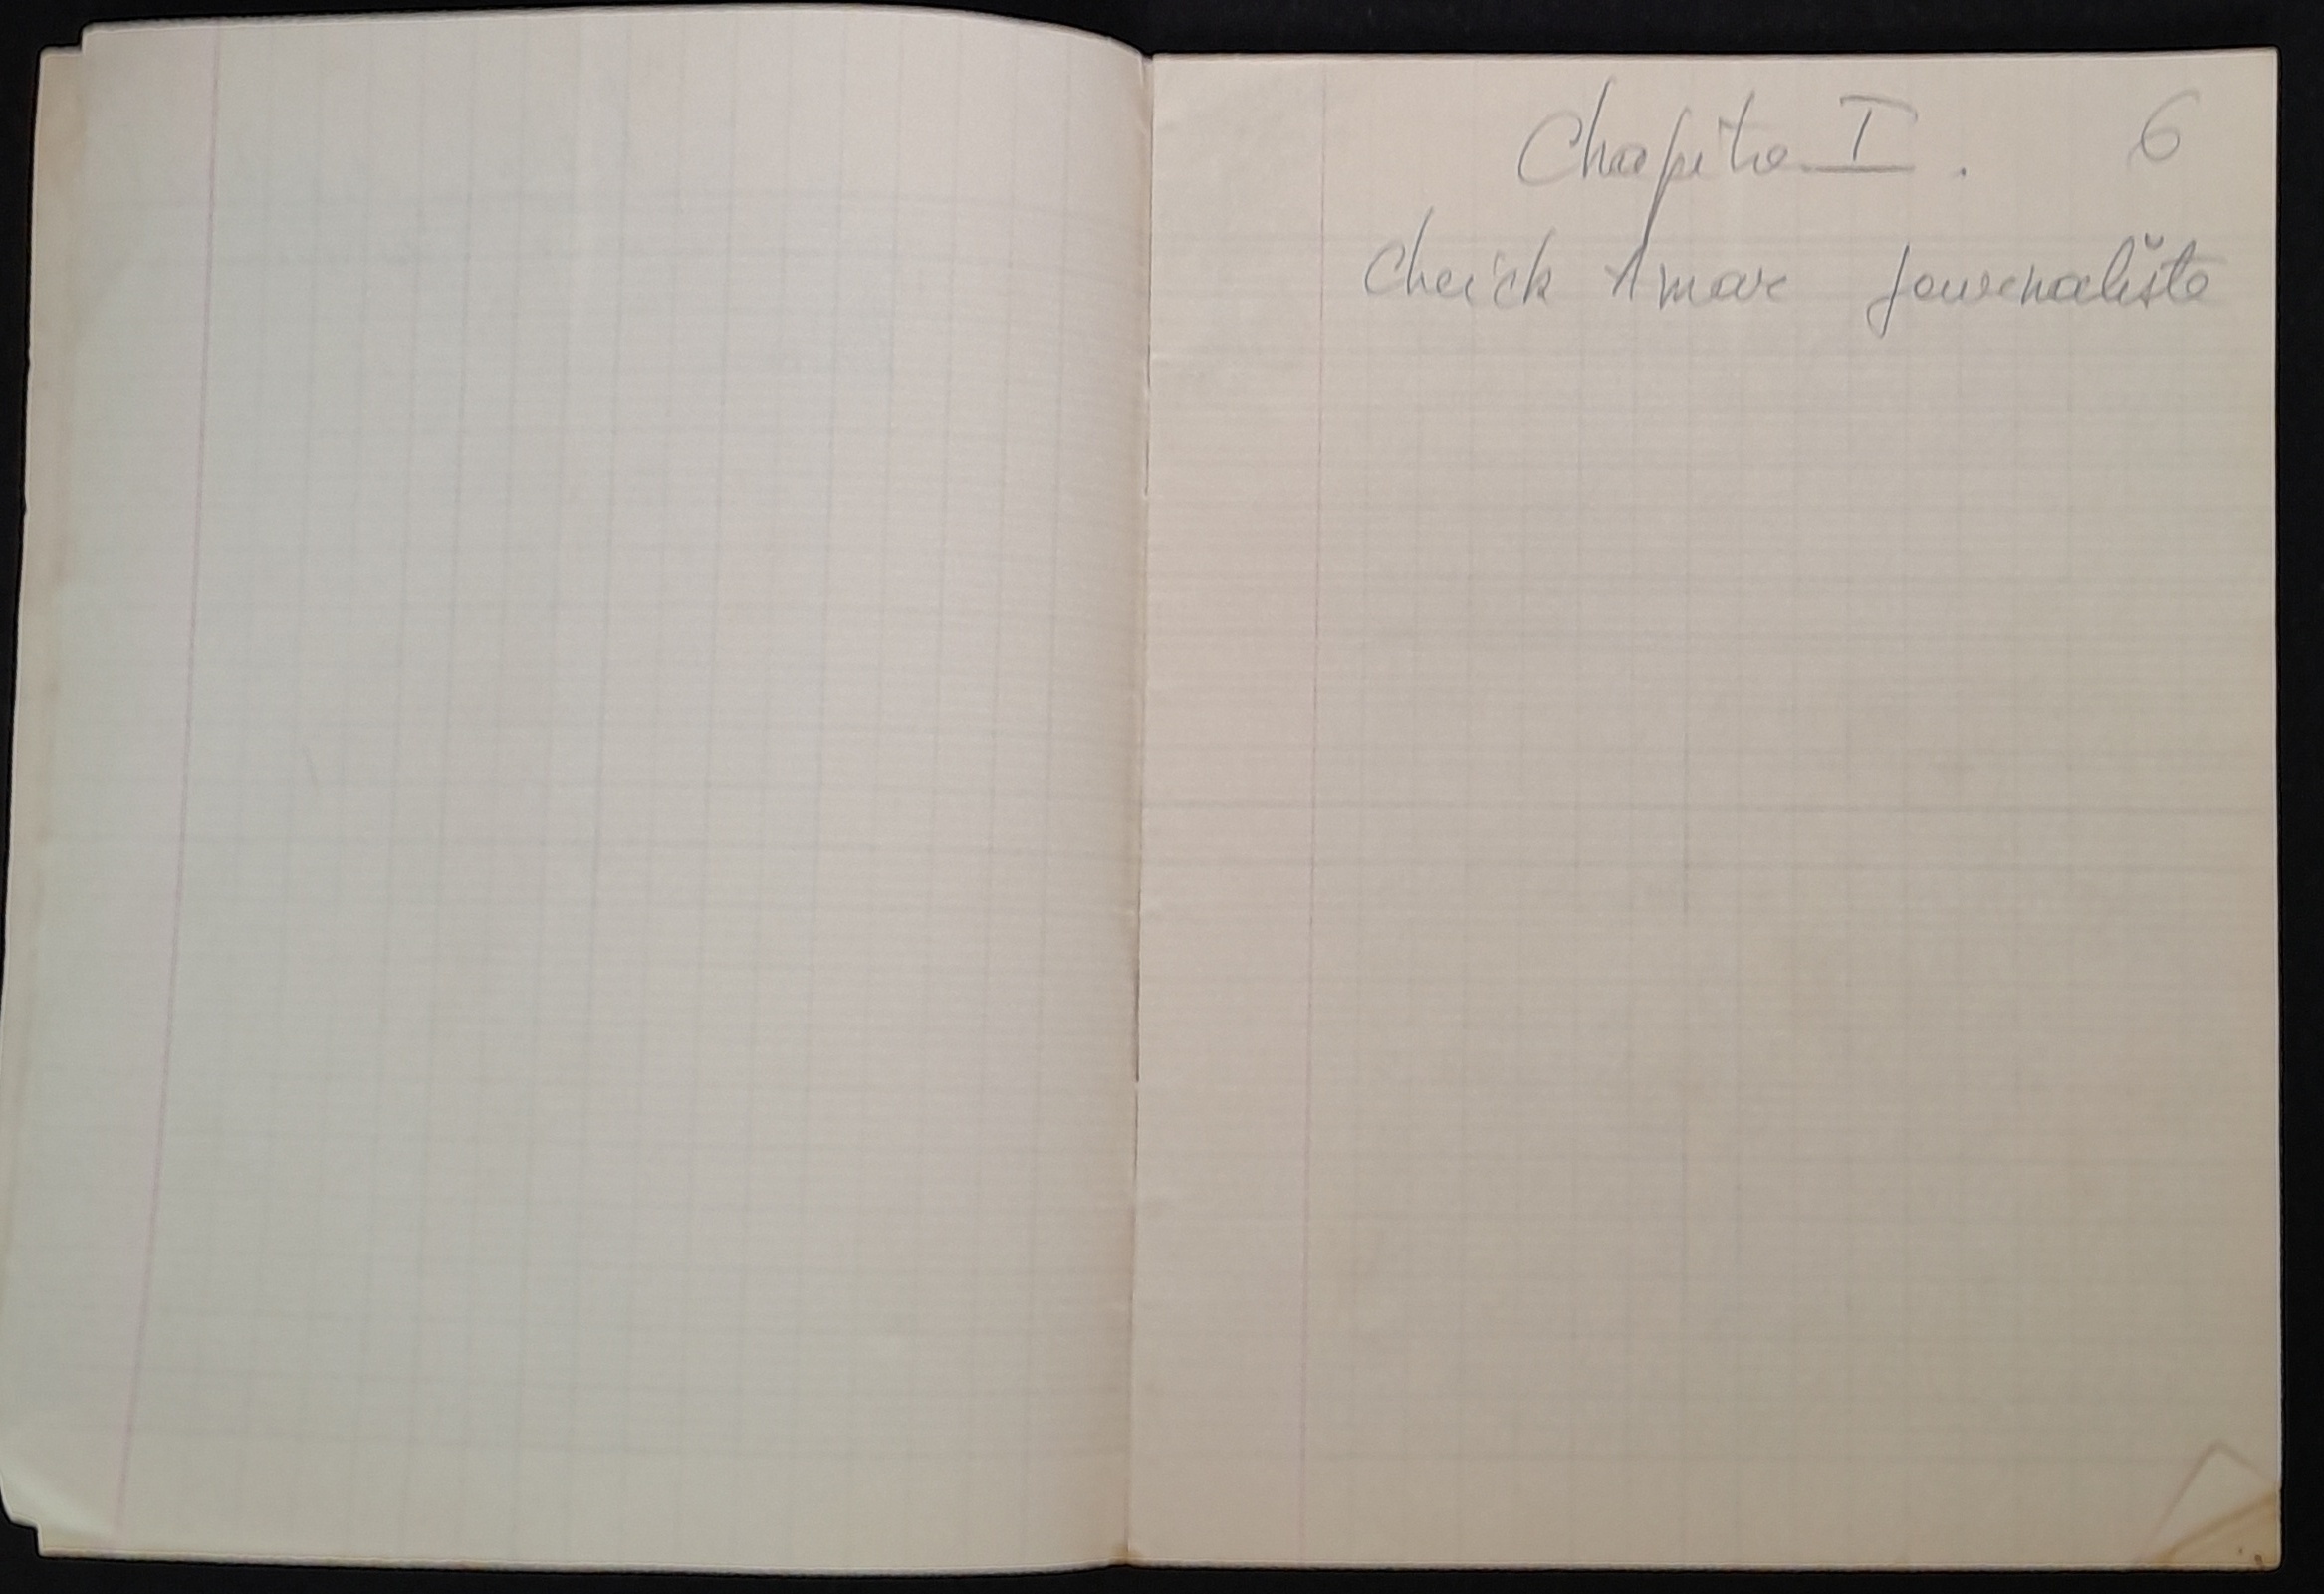 Chapitre I. 6
Cheick Amar journaliste